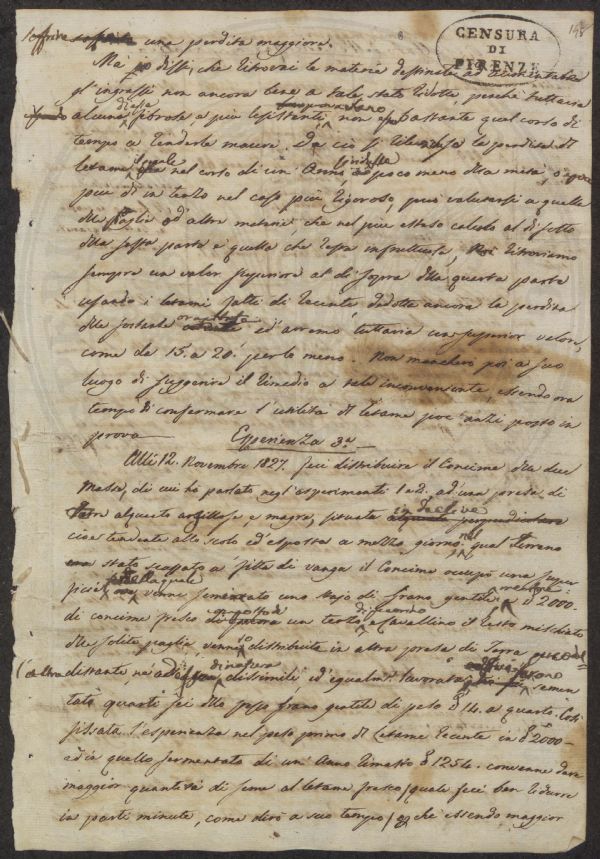 195
CENSURA
DI
FIRENZE
soffrire una perdita maggiore.
Ma io dissi, che ritrovai le materie destinate ad aumentare
gl'ingrassi non ancora bene a tale stato ridotte, perchè tuttavia
alcune fibrate e più resistenti, non bastante quel corso di
tempo a renderle macere. Da ciò si la perdita di
letame nel corso di un Anno poco meno della metà, o
più di un terzo nel caso più rigoroso può valutarsi a quella
delle paglie ed altre materie che nel più esteso calcolo al di sotto
della sesta parte è quella che resta infruttuosa, Noi ritroviamo
sempre un valor superiore al di sopra della quarta parte
usando i letami fatti di recente, dedotta ancora la perdita
delle sostanze ed avremo tuttavia un superior valore,
come da 15. a 20. per lo meno. Non mancherò poi a suo
luogo di suggerire il rimedio a tale inconveniente, essendo ora
tempo di confermare l'utilità del letame poc'anzi posto in
prova
Esperienza 3.a
Alli 12. Novembre 1827. feci distribuire il Concime delle due
Masse, di cui ho parlato negl'esperimenti 1 e 2. ad una presa di
Terra alquanto argillosa, e magra, situata in declive
cioè tendente allo scolo ed esposta a mezzo giorno, nel qual Terreno
stato scassato a fitta di vanga il Concime occupò una super
ficie, nella quale venne sementato uno stajo di grano gentile. 2000-
di concime fresco un terzo cavallino il resto mischiato
delle solite paglie, venne distribuito in altra presa di Terra poco di
distante nè di natura dissimile ed egualmente lavorata semen
tata, quanti sei dello stesso grano gentile di peso 14. a quarto. Così
fissata l'esperienza nel peso primo di Letame recente in 2000-
ed in quello fermentato di un Anno rimasto 1254. convenne dare
maggior quantità di seme al letame fresco, quale feci ben ridurre
in parti minute, come dirò a suo tempo, che essendo maggior